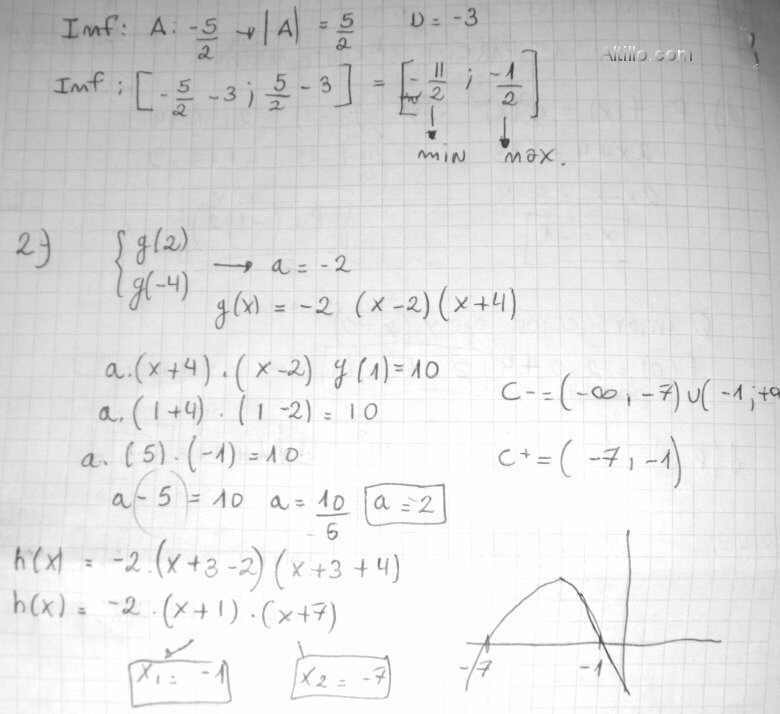 Imf: A: -5/2 → |A| = 5/2 D = -3
Altillo.com
Imf: [-5/2 - 3; 5/2 - 3] = [-11/2; -1/2]
min max.
2) { g(2) g(-4) → a = -2
g(x) = -2 (x-2)(x+4)
a.(x+4).(x-2) y(1)=10
a.(1+4).(1-2) = 10
C- = (-∞, -7) ∪ (-1; +∞
a. (5).(-1) = 10
C+ = (-7, -1)
a -5 = 10 a = 10/-5 a = -2
h(x) = -2.(x+3-2)(x+3+4)
h(x) = -2.(x+1).(x+7)
-7 -1
x₁ = -1 x₂ = -7